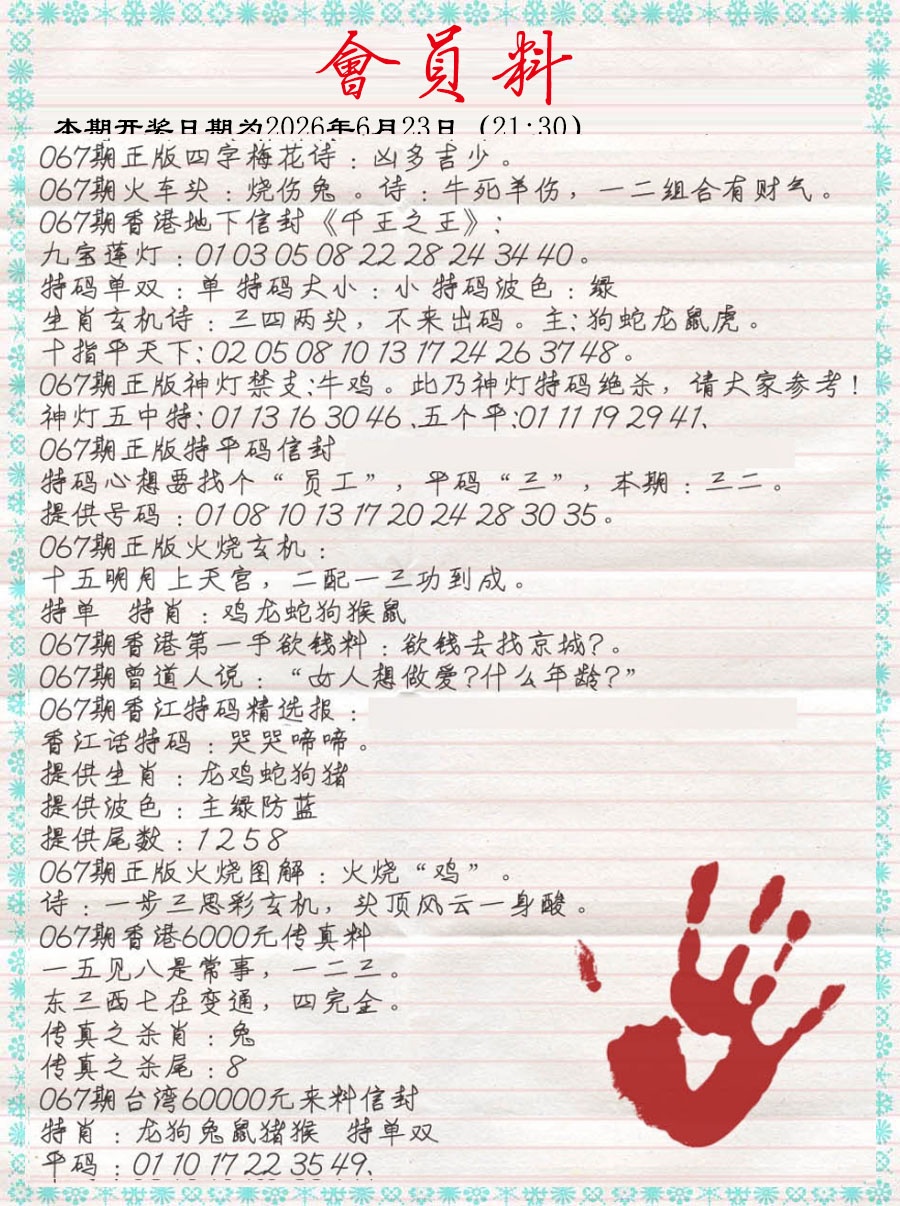 會員料
本期开奖日期为2026年6月23日（21:30）
067期正版四字梅花诗：凶多吉少。
067期火车头：烧伤兔。诗：牛死羊伤，一二组合有财气。
067期香港地下信封《千王之王》：
九宝莲灯：01 03 05 08 22 28 24 34 40。
特码单双：单 特码大小：小 特码波色：绿
生肖玄机诗：三四两头，不来出码。主：狗蛇龙鼠虎。
十指平天下：02 05 08 10 13 17 24 26 37 48。
067期正版神灯禁支：牛鸡。此乃神灯特码绝杀，请大家参考！
神灯五中特：01 13 16 30 46、五个平：01 11 19 29 41、
067期正版特平码信封
特码心想要找个“员工”，平码“三”，本期：三二。
提供号码：01 08 10 13 17 20 24 28 30 35。
067期正版火烧玄机：
十五明月上天宫，二配一三功到成。
特单 特肖：鸡龙蛇狗猴鼠
067期香港第一手欲钱料：欲钱去找京城？。
067期曾道人说：“女人想做爱？什么年龄？”
067期香江特码精选报：
香江话特码：哭哭啼啼。
提供生肖：龙鸡蛇狗猪
提供波色：主绿防蓝
提供尾数：1 2 5 8
067期正版火烧图解：火烧“鸡”。
诗：一步三思彩玄机，头顶风云一身酸。
067期香港6000元传真料
一五见八是常事，一二三。
东三西七在变通，四完金。
传真之杀肖：兔
传真之杀尾：8
067期台湾60000元来料信封
特肖：龙狗兔鼠猪猴 特单双
平码：01 10 17 22 35 49、